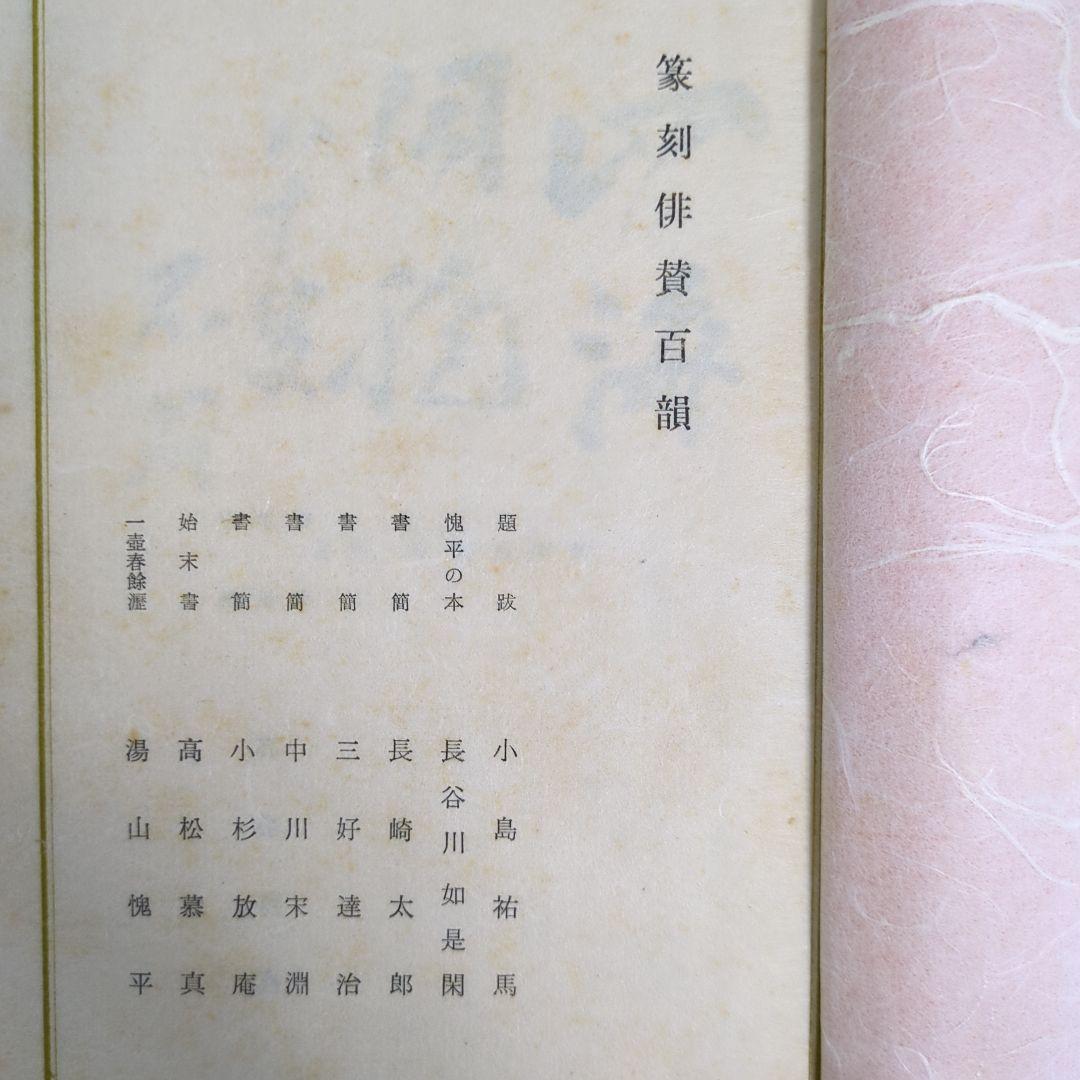 篆刻俳賛百韻
題跋 小島祐馬
愧平の本 長谷川如是閑
書簡 長崎太郎
書簡 三好達治
書簡 中川宋淵
書簡 小杉放庵
始末書 高松慕真
一壺春餘瀝 湯山愧平